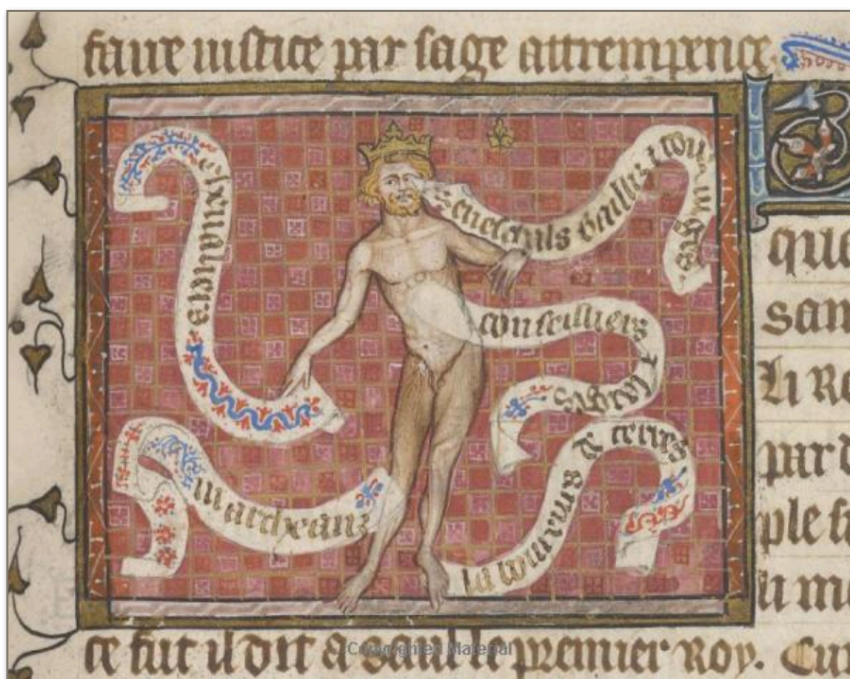 faire iustice par sage attrempence.
cheualiers
seneschals baillis &
conseilliers & sages
marcheans
de terres
que
san
Li Ro
par d
ple fu
li me
ce fut il dit a saul le premier Roy. Cur
Copyrighted Material